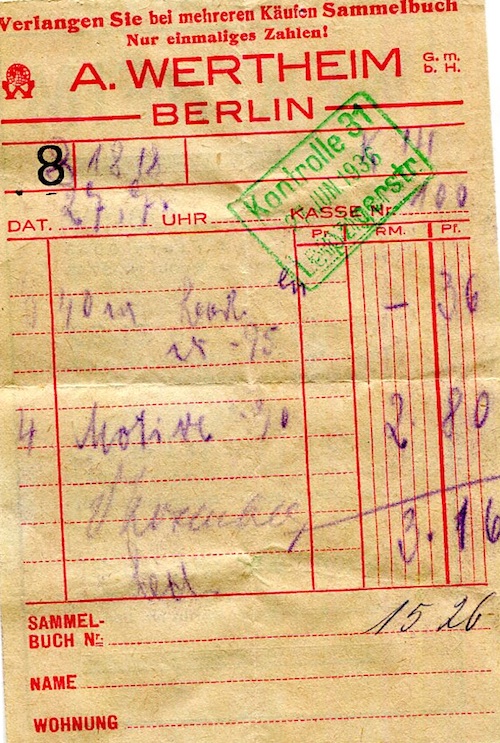 Verlangen Sie bei mehreren Käufen Sammelbuch
Nur einmaliges Zahlen!
A. WERTHEIM G. m. b. H.
BERLIN
8
Kontrolle 31
JUN 1936
Leipzigerstr
DAT. 27. UHR KASSE Nr. 100
Pr. RM. Pf.
- 36
-75
4 Motive -70 2.80
3.16
SAMMEL-
BUCH Nr. 1526
NAME
WOHNUNG